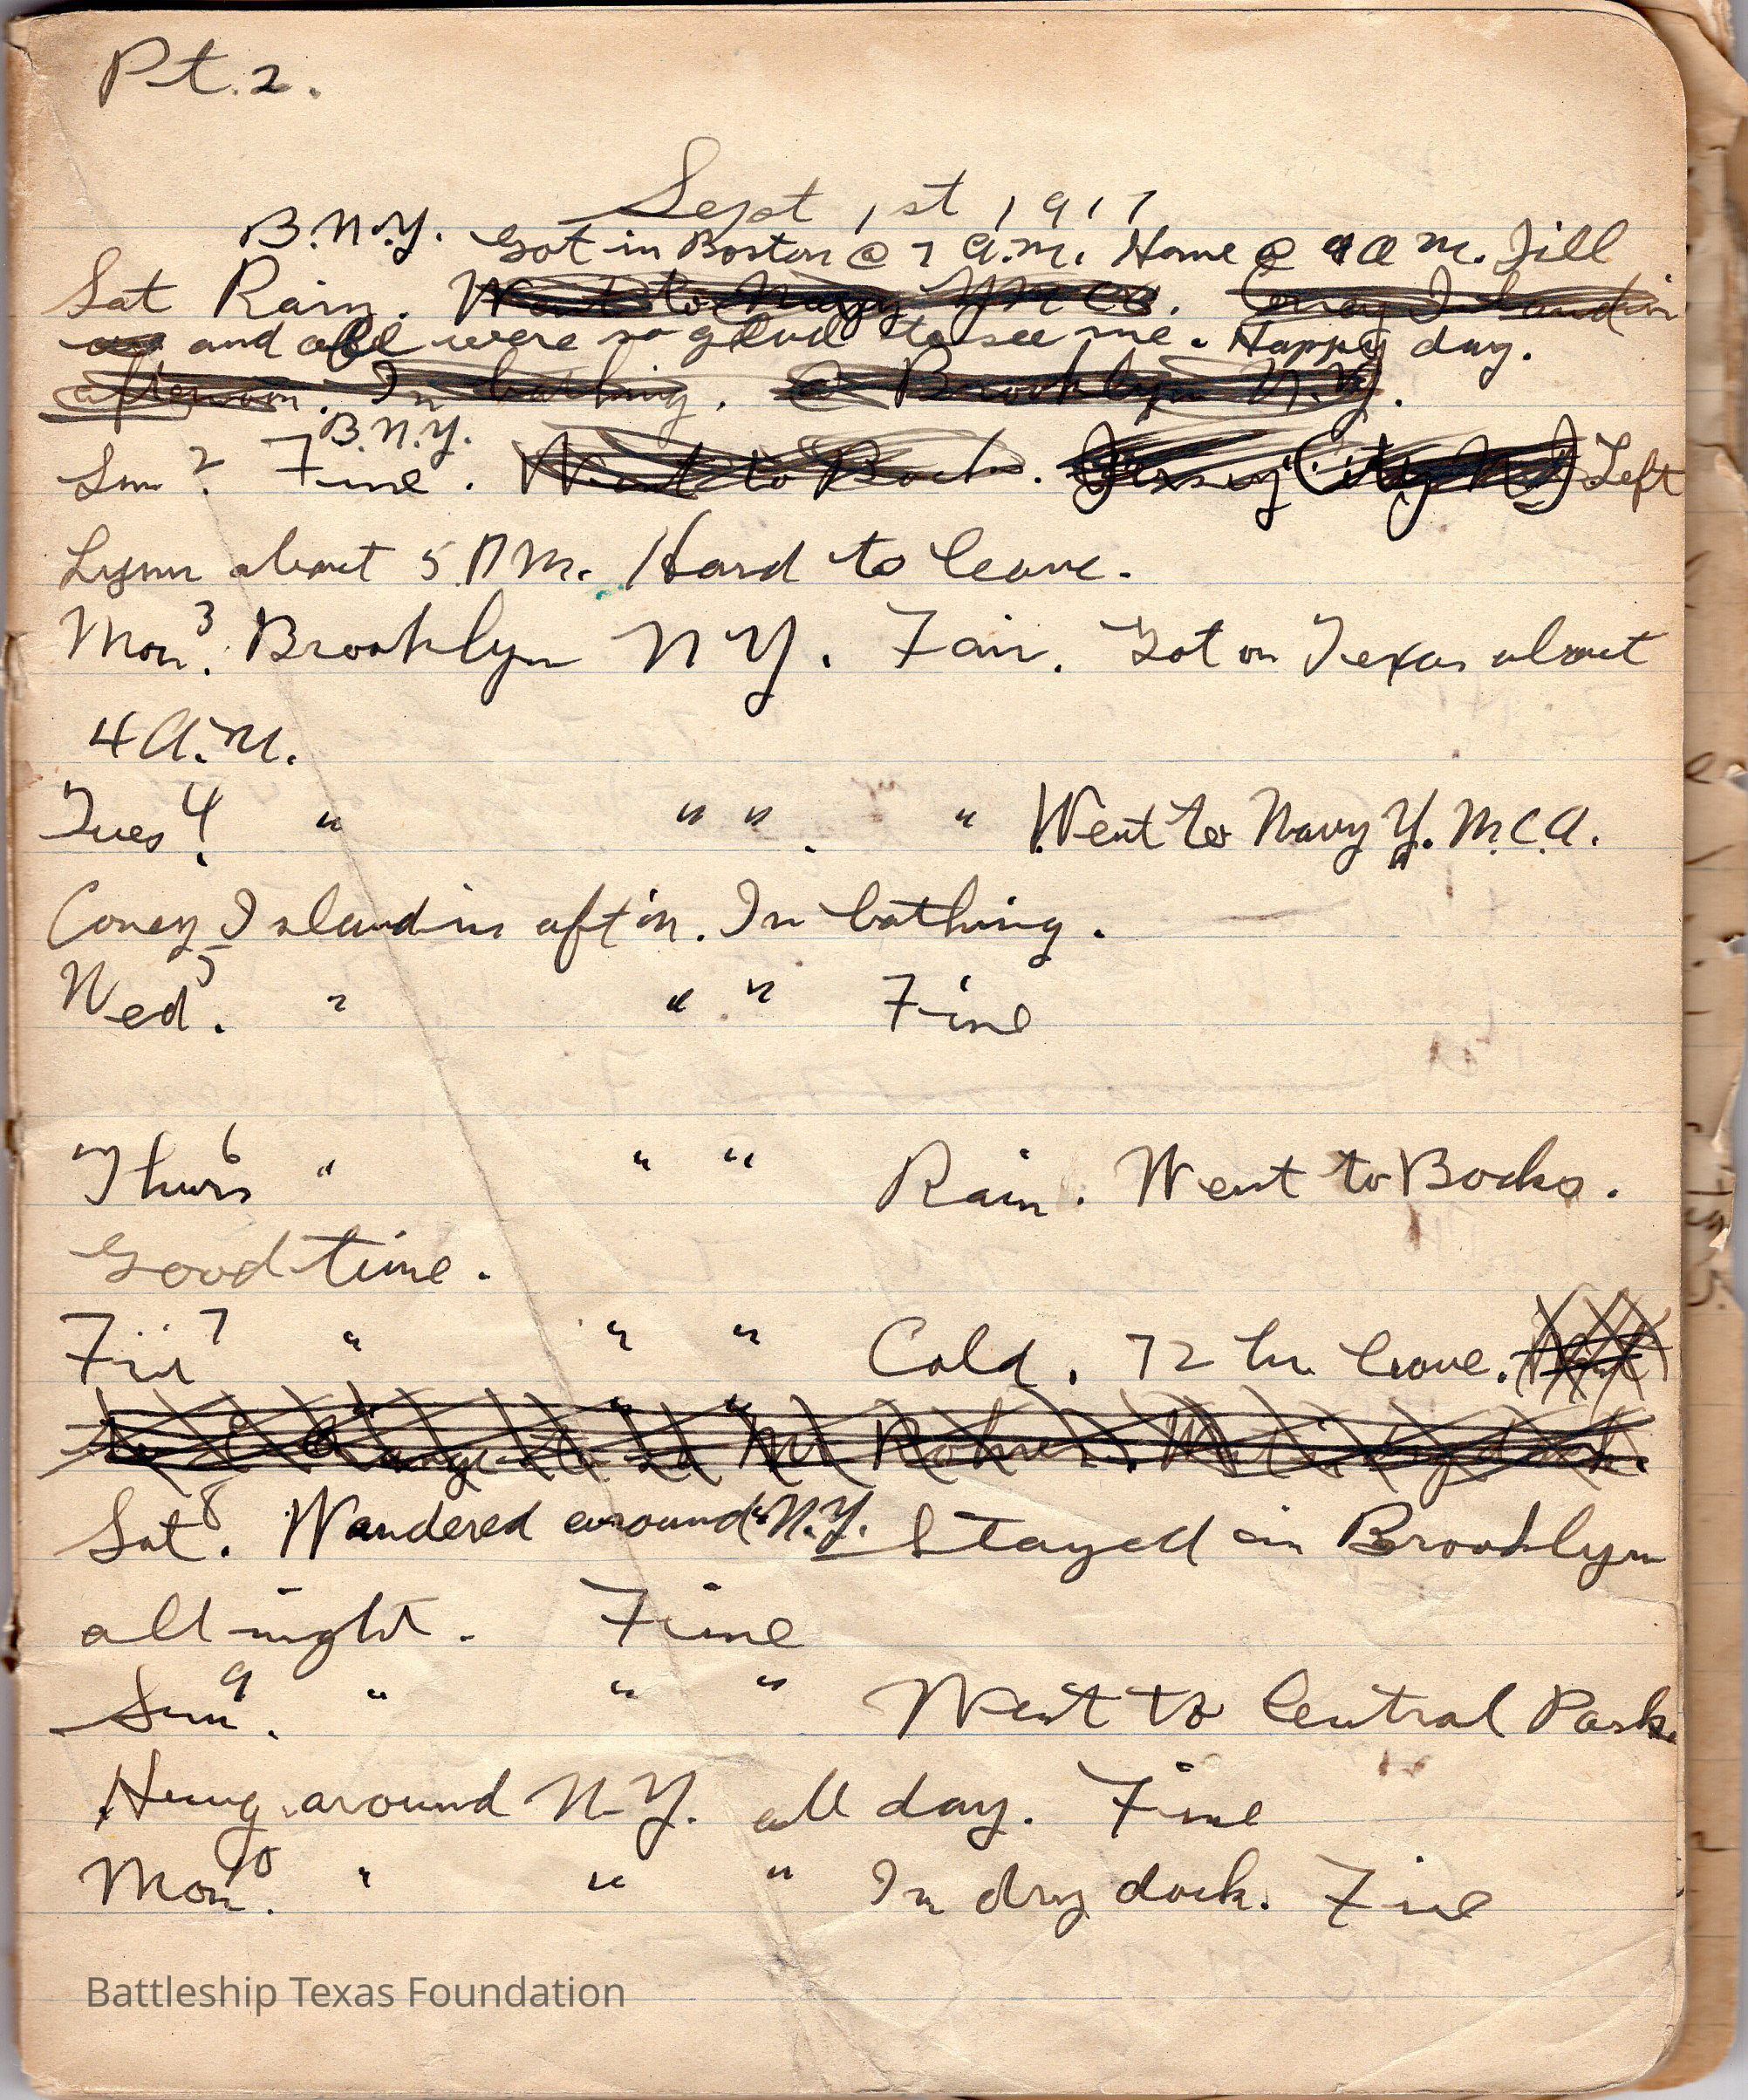 Pt. 2.
Sept 1st 1917
B.N.Y. Got in Boston @ 7 A.M. Home @ 9 A M. Jill
Sat Rain. Went to Navy Y M C A. Coney Island in
and all were so glad to see me. Happy day.
afternoon. In bathing. @ Brooklyn N.Y.
B.N.Y.
Sun 2. Fine. Went to Bocks. Jersey City N J Left
Lynn about 5 P.M. Hard to leave.
Mon. 3 Brooklyn N Y. Fair. Got on Texas about
4 A.M.
Tues 4. " " ". " Went to Navy Y. M.C.A.
Coney Island in aft'n. In bathing.
Wed. 5 " " " Fine
Thurs 6 " " " Rain. Went to Bocks.
Good time.
Fri 7 " " " Cold. 72 hr leave.
" " "
Sat. 8 Wandered around N.Y. Stayed in Brooklyn
all night. Fine
Sun. 9 " " " Went to Central Park.
Hung around N.Y. all day. Fine
Mon. 10 " " " In dry dock. Fine
Battleship Texas Foundation